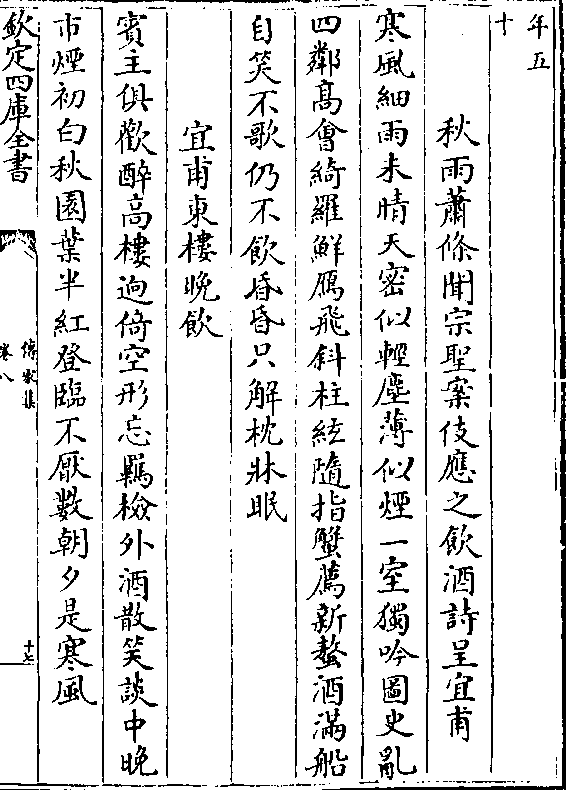 年五
十
秋雨蕭條聞宗聖案伎應之飲酒詩呈宜甫
寒風細雨未晴天密似輕塵薄似煙一室獨吟圖史亂
四鄰髙會綺羅鮮鴈飛斜柱絃隨指蟹薦新螯酒滿船
自笑不歌仍不飲昏昏只解枕牀眠
宜甫東樓晚飲
賓主俱歡醉高樓逈倚空形忘羈檢外酒散笑談中晚
市煙初白秋園葉半紅登臨不厭數朝夕是寒風
欽定四庫全書
傳家集
卷八
十七